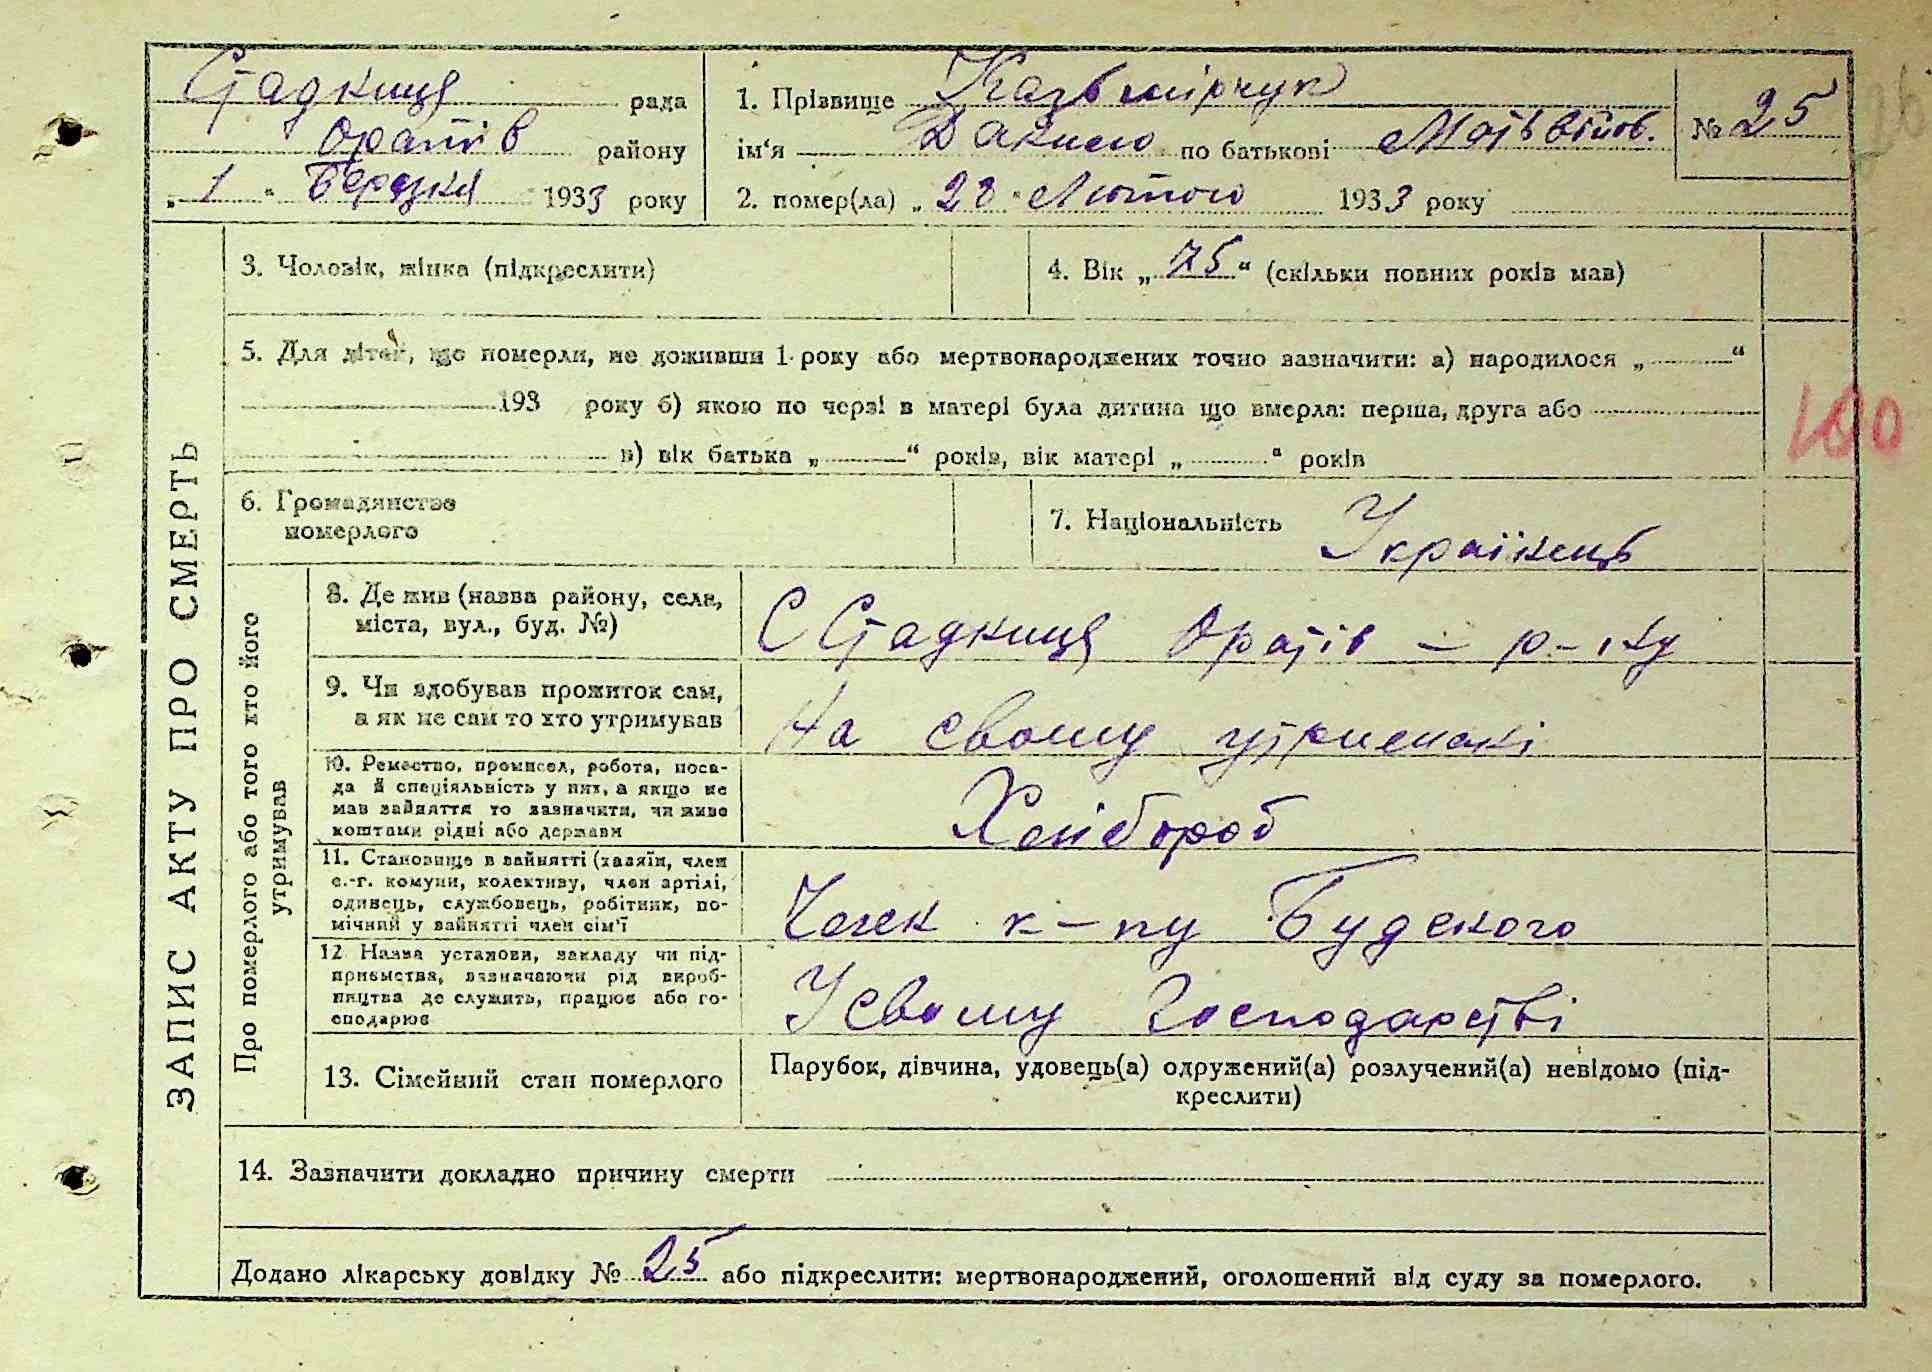 Стадниця рада
Оратів району
„ 1 " Березня 1933 року
1. Прізвище Казьмірчук
ім'я Данило по батькові Матвійов.
2. помер(ла) „ 28 " Лютого 1933 року
№ 25
ЗАПИС АКТУ ПРО СМЕРТЬ
3. Чоловік, жінка (підкреслити)
4. Вік „ 75 " (скільки повних років мав)
5. Для дітей, що померли, не доживши 1 року або мертвонароджених точно зазначити: а) народилося „ "
193 року б) якою по черзі в матері була дитина що вмерла: перша, друга або
в) вік батька „ " років, вік матері „ " років
100
6. Громадянство
померлого
7. Національність Українець
Про померлого або того хто його
утримував
8. Де жив (назва району, села,
міста, вул., буд. №)
С Стадниця Оратів – р-ну
9. Чи здобував прожиток сам,
а як не сам то хто утримував
На свому утримані
10. Ремество, промисел, робота, поса-
да й спеціяльність у них, а якщо не
мав зайняття то зазначити, чи живе
коштами рідні або держави
Хлібороб
11. Становище в зайнятті (хазяїн, член
с.-г. комуни, колективу, член артілі,
одинець, службовець, робітник, по-
мічний у зайнятті член сім'ї
Член к-пу Будьоного
12 Назва установи, закладу чи під-
приємства, зазначаючи рід вироб-
ництва де служить, працює або го-
сподарює
У свому господарстві
13. Сімейний стан померлого
Парубок, дівчина, удовець(а) одружений(а) розлучений(а) невідомо (під-
креслити)
14. Зазначити докладно причину смерти
Додано лікарську довідку № 25 або підкреслити: мертвонароджений, оголошений від суду за померлого.